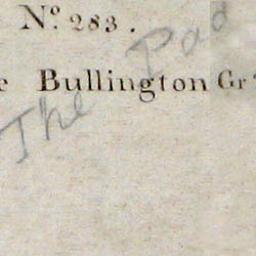 No. 283.
e Bullington Gr
The Pad